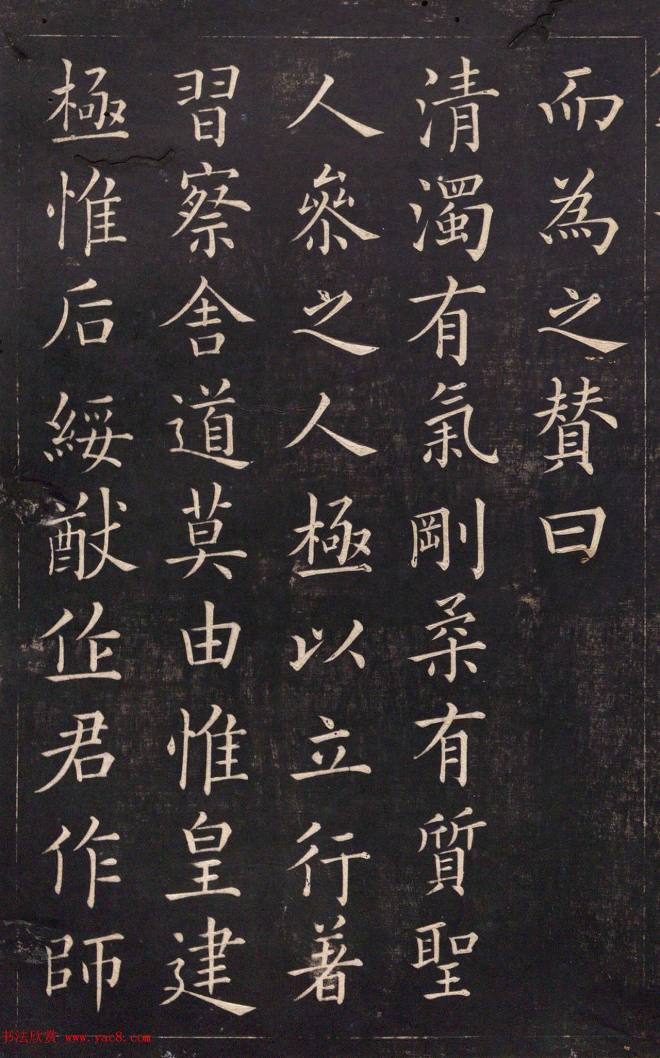 而為之賛曰
清濁有氣剛柔有質聖
人叅之人極以立行著
習察舎道莫由惟皇建
極惟后綏猷作君作師
书法欣赏 www.yac8.com